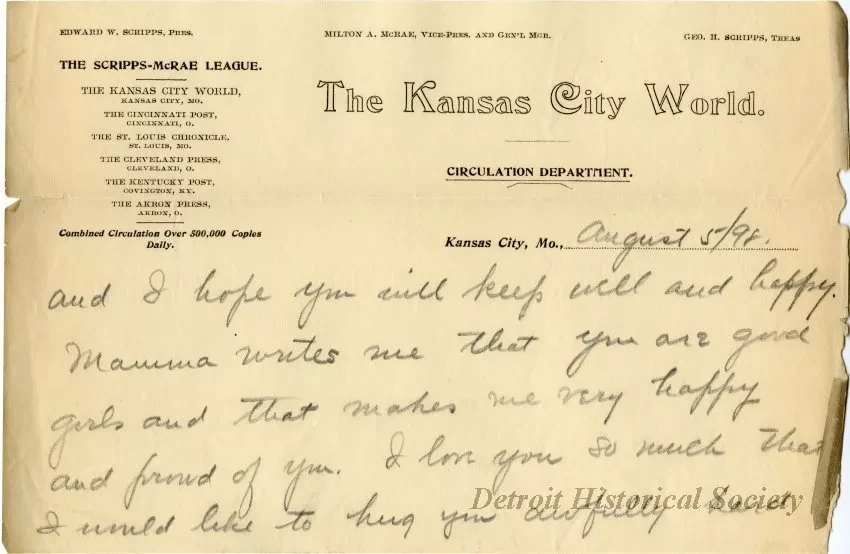 EDWARD W. SCRIPPS, PRES.
MILTON A. MCRAE, VICE-PRES. AND GEN'L MGR.
GEO. H. SCRIPPS, TREAS
THE SCRIPPS-MCRAE LEAGUE.
THE KANSAS CITY WORLD,
KANSAS CITY, MO.
THE CINCINNATI POST,
CINCINNATI, O.
THE ST. LOUIS CHRONICLE,
ST. LOUIS, MO.
THE CLEVELAND PRESS,
CLEVELAND, O.
THE KENTUCKY POST,
COVINGTON, KY.
THE AKRON PRESS,
AKRON, O.
Combined Circulation Over 500,000 Copies
Daily.
The Kansas City World.
CIRCULATION DEPARTMENT.
Kansas City, Mo., August 5/98.
and I hope you will keep well and happy.
Mamma writes me that you are good
girls and that makes me very happy
and proud of you. I love you so much that
I would like to hug you awfully hard
Detroit Historical Society